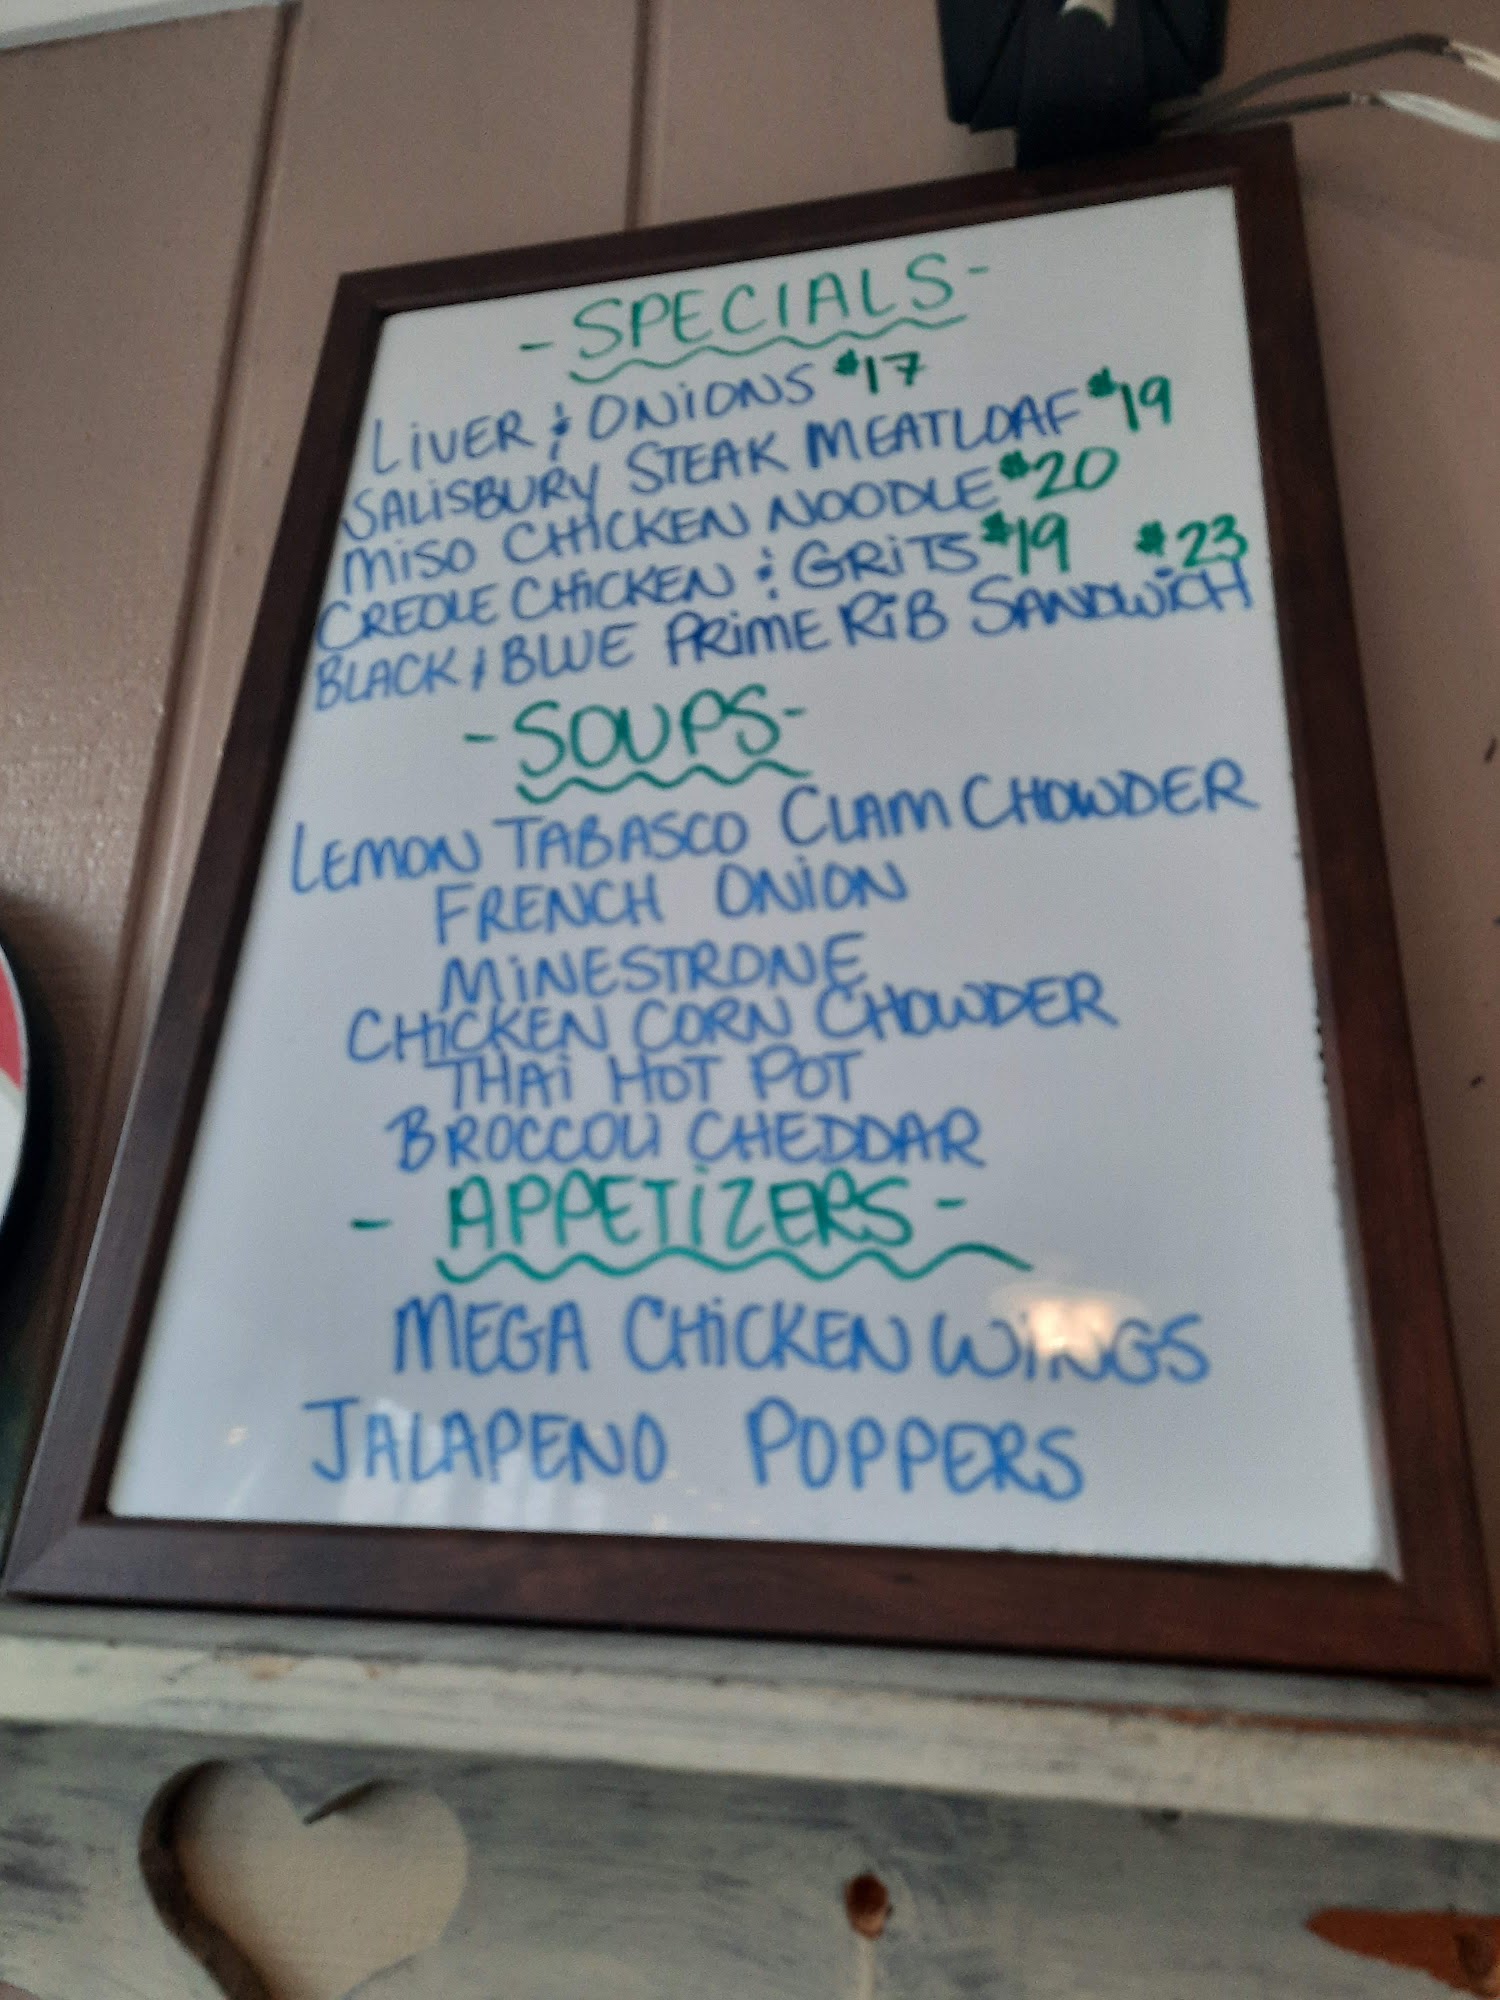 - SPECIALS -
LIVER & ONIONS $17
SALISBURY STEAK MEATLOAF $19
MISO CHICKEN NOODLE $20
CREOLE CHICKEN & GRITS $19
$23
BLACK & BLUE PRIME RIB SANDWICH
- SOUPS -
LEMON TABASCO CLAM CHOWDER
FRENCH ONION
MINESTRONE
CHICKEN CORN CHOWDER
THAI HOT POT
BROCCOLI CHEDDAR
- APPETIZERS -
MEGA CHICKEN WINGS
JALAPENO POPPERS